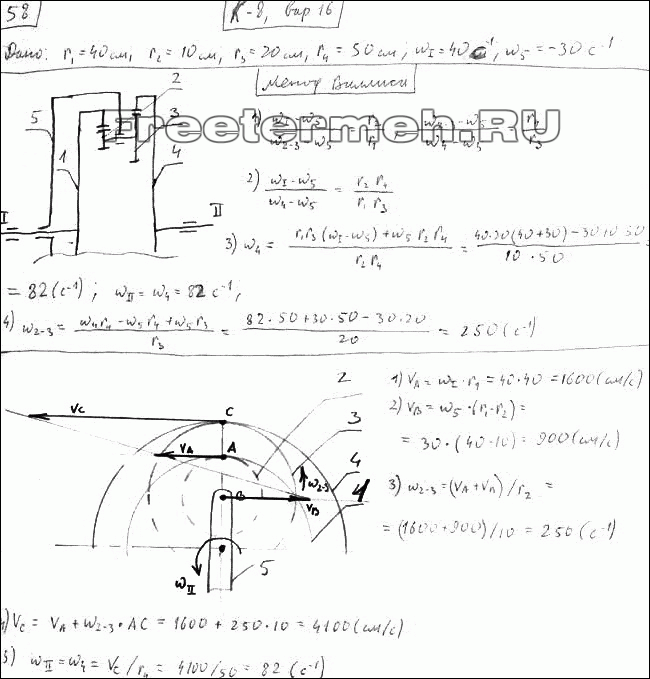 58
К-8, вар 16
Дано: r₁ = 40 см, r₂ = 10 см, r₃ = 20 см, r₄ = 50 см; ω_I = 40 с⁻¹, ω₅ = -30 с⁻¹
Метод Виллиса
freetermeh.RU
2
5
3
1
4
I
II
1) (ω_I - ω₅)/(ω₂₋₃ - ω₅) = r₂/r₁, (ω₂₋₃ - ω₅)/(ω₄ - ω₅) = r₄/r₃
2) (ω_I - ω₅)/(ω₄ - ω₅) = (r₂ r₄)/(r₁ r₃)
3) ω₄ = (r₁r₃(ω_I - ω₅) + ω₅ r₂ r₄)/(r₂ r₄) = (40·20(40+30) - 30·10·50)/(10·50) =
= 82 (с⁻¹); ω_II = ω₄ = 82 с⁻¹;
4) ω₂₋₃ = (ω₄r₄ - ω₅r₄ + ω₅r₃)/r₃ = (82·50 + 30·50 - 30·20)/20 = 250 (с⁻¹)
2
V_C
C
3
V_A
A
4
ω₂₋₃
B
V_B
1
ω_II
5
1) V_A = ω_I · r₁ = 40·40 = 1600 (см/с)
2) V_B = ω₅ · (r₁ - r₂) =
= 30·(40-10) = 900 (см/с)
3) ω₂₋₃ = (V_A + V_B)/r₂ =
= (1600+900)/10 = 250 (с⁻¹)
) V_C = V_A + ω₂₋₃ · AC = 1600 + 250·10 = 4100 (см/с)
5) ω_II = ω₄ = V_C/r₄ = 4100/50 = 82 (с⁻¹)